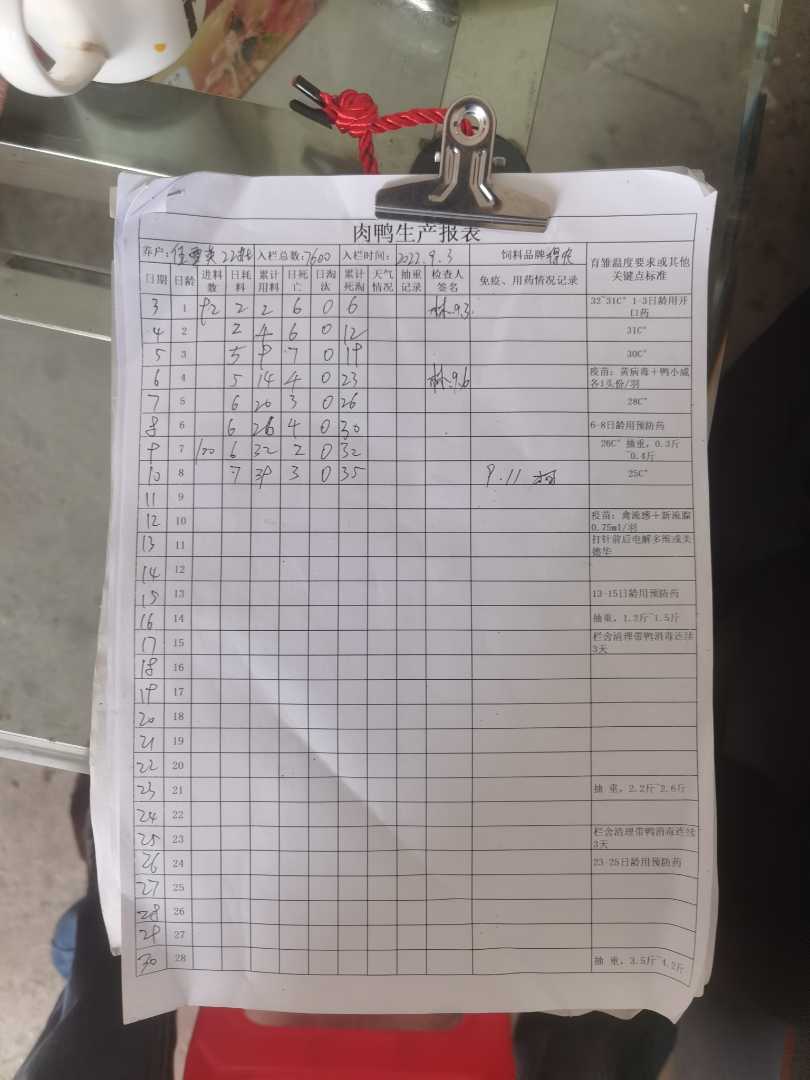 肉鸭生产报表
养户: 22批 入栏总数:7600 入栏时间: 2022.9.3 饲料品牌 育雏温度要求或其他关键点标准
日期 日龄 进料数 日耗料 累计用料 日死亡 日淘汰 累计死淘 天气情况 抽重记录 检查人签名 免疫、用药情况记录
3 1 92 2 2 6 0 6 林9.3 32~31C° 1-3日龄用开口药
4 2 2 4 6 0 12 31C°
5 3 5 9 7 0 19 30C°
6 4 5 14 4 0 23 林9.6 疫苗:黄病毒+鸭小咸各1头份/羽
7 5 6 20 3 0 26 28C°
8 6 6 26 4 0 30 6-8日龄用预防药
9 7 100 6 32 2 0 32 26C° 抽重,0.3斤~0.4斤
10 8 7 39 3 0 35 9.11 25C°
11 9
12 10 疫苗:禽流感+新流腺0.75ml/羽
13 11 打针前后电解多维或美德华
14 12
15 13 13-15日龄用预防药
16 14 抽重,1.2斤~1.5斤
17 15 栏舍清理带鸭消毒连续3天
18 16
19 17
20 18
21 19
22 20
23 21 抽 重,2.2斤~2.6斤
24 22
25 23 栏舍清理带鸭消毒连续3天
26 24 23-25日龄用预防药
27 25
28 26
29 27
30 28 抽 重,3.5斤~4.2斤